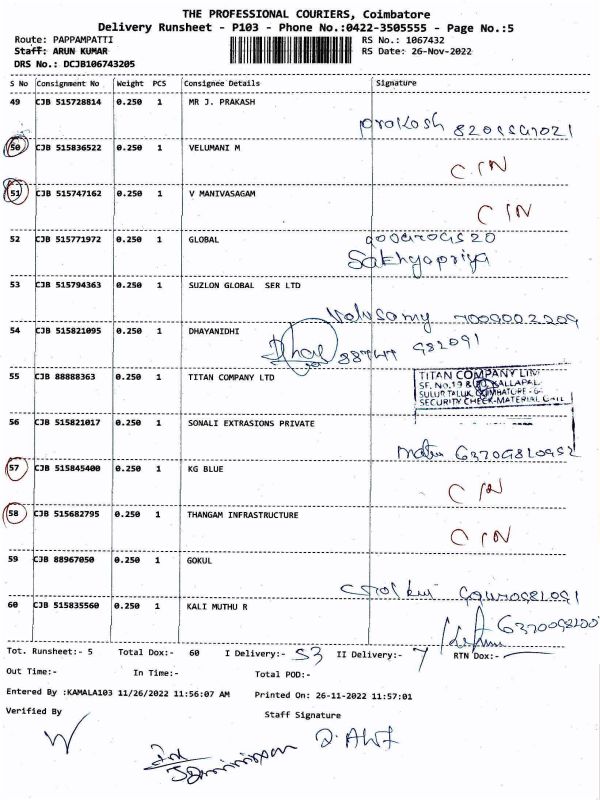 THE PROFESSIONAL COURIERS, Coimbatore
Delivery Runsheet - P103 - Phone No.:0422-3505555 - Page No.:5
Route: PAPPAMPATTI RS No.: 1067432
Staff: ARUN KUMAR RS Date: 26-Nov-2022
DRS No.: DCJB106743205
S No Consignment No Weight PCS Consignee Details Signature
49 CJB 515728814 0.250 1 MR J. PRAKASH
Prakash
50 CJB 515836522 0.250 1 VELUMANI M
CIN
51 CJB 515747162 0.250 1 V MANIVASAGAM
CIN
52 CJB 515771972 0.250 1 GLOBAL
Sathyapriya
53 CJB 515794363 0.250 1 SUZLON GLOBAL SER LTD
54 CJB 515821095 0.250 1 DHAYANIDHI
55 CJB 88888363 0.250 1 TITAN COMPANY LTD
TITAN COMPANY
SULUR TALUK
SECURITY CHECK-MATERIAL
56 CJB 515821017 0.250 1 SONALI EXTRASIONS PRIVATE
57 CJB 515845400 0.250 1 KG BLUE
CIN
58 CJB 515682795 0.250 1 THANGAM INFRASTRUCTURE
CIN
59 CJB 88967050 0.250 1 GOKUL
60 CJB 515835560 0.250 1 KALI MUTHU R
Tot. Runsheet:- 5 Total Dox:- 60 I Delivery:- 53 II Delivery:- 7 RTN Dox:-
Out Time:- In Time:- Total POD:-
Entered By :KAMALA103 11/26/2022 11:56:07 AM Printed On: 26-11-2022 11:57:01
Verified By Staff Signature